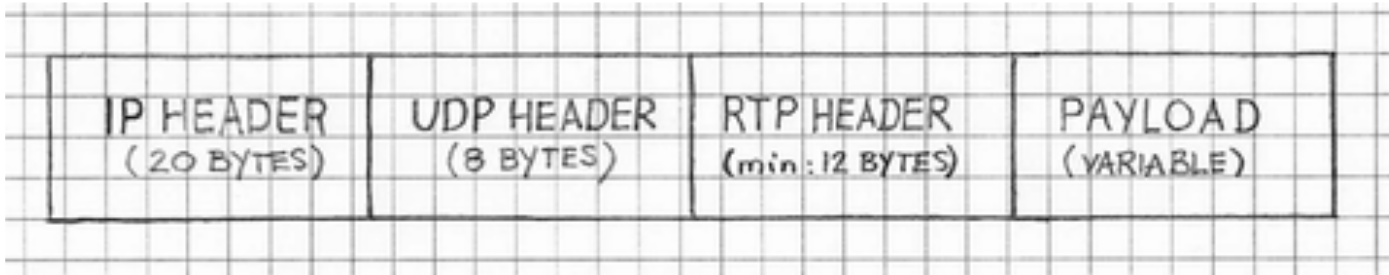 IP HEADER
(20 BYTES)
UDP HEADER
(8 BYTES)
RTP HEADER
(min: 12 BYTES)
PAYLOAD
(VARIABLE)